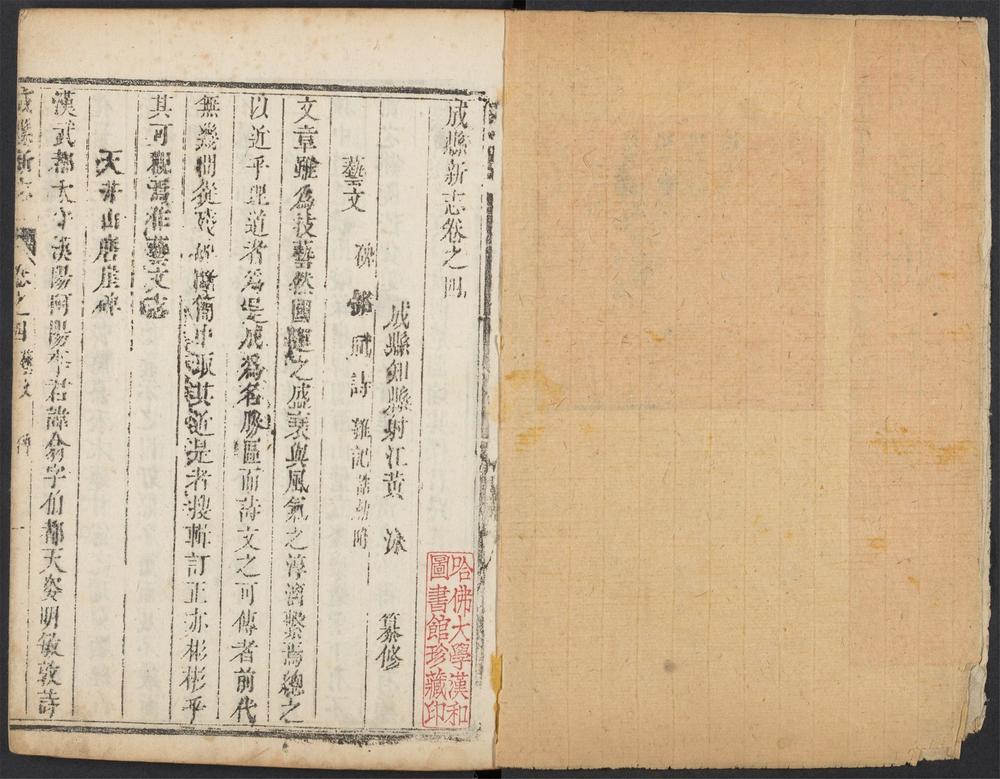 成縣新志卷之四
成縣知縣射江黃泳
纂修
藝文 碑 賦 詩 雜記
文章雖為技藝然國運之盛衰與風氣之淳澆繫焉總之
以近乎理道者為是成為名勝區而詩文之可傳者前代
無幾間從殘碑斷簡中取其近是者搜輯訂正亦彬彬乎
其可觀焉作藝文志
天井山磨崖碑
漢武都太守漢陽阿陽李君諱翕字伯都天姿明敏敦詩
成縣新志 卷之四 藝文 碑 一
哈佛大學漢和
圖書館珍藏印